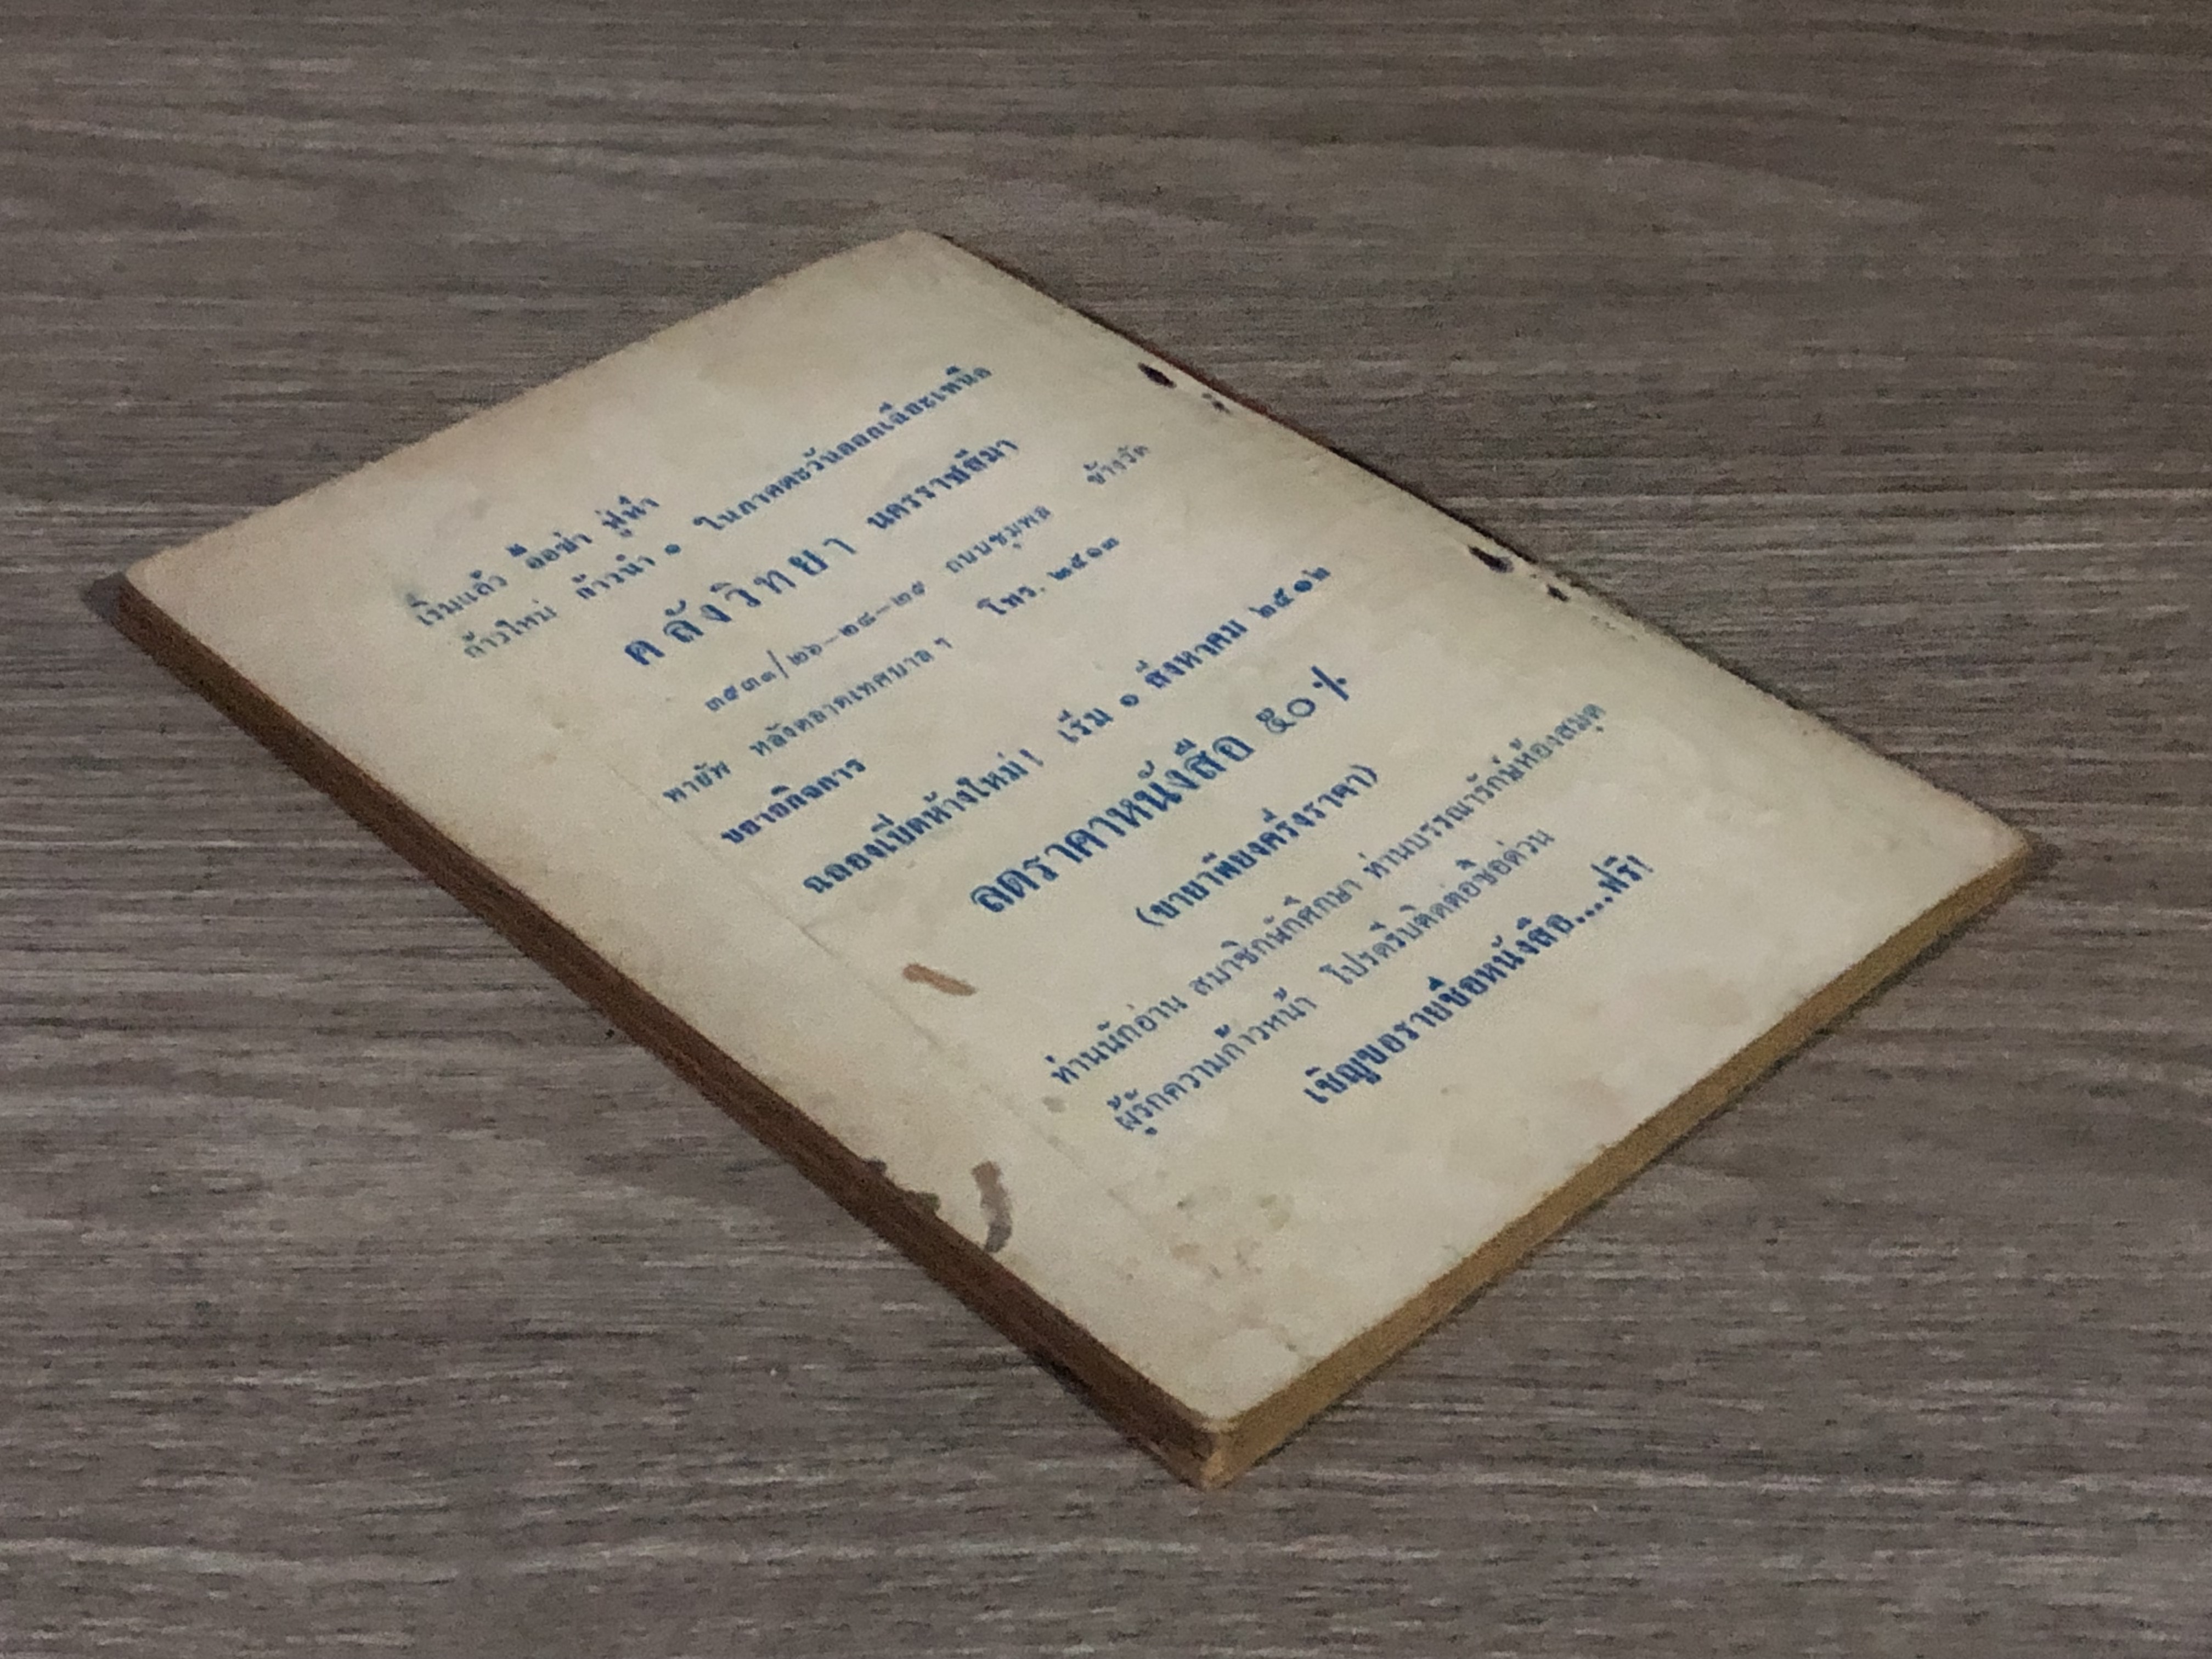 เริ่มแล้ว อือซ่า ฟู่ฟ่า
ก้าวใหม่ ก้าวนำ ๑ ในภาคตะวันออกเฉียงเหนือ
คลังวิทยา นครราชสีมา
๒๖–๒๘–๒๙ ถนนชุมพล ข้างวัด
พายัพ หลังตลาดเทศบาล ๆ โทร. ๒๕๑๓
ขยายกิจการ
ฉลองเปิดห้างใหม่! เริ่ม ๑ สิงหาคม ๒๕๑๒
ลดราคาหนังสือ ๕๐ %
(ขายเพียงครึ่งราคา)
ท่านนักอ่าน สมาชิกนักศึกษา ท่านบรรณารักษ์ห้องสมุด
ผู้รักความก้าวหน้า โปรดรีบติดต่อซื้อด่วน
เชิญขอรายชื่อหนังสือ....ฟรี!